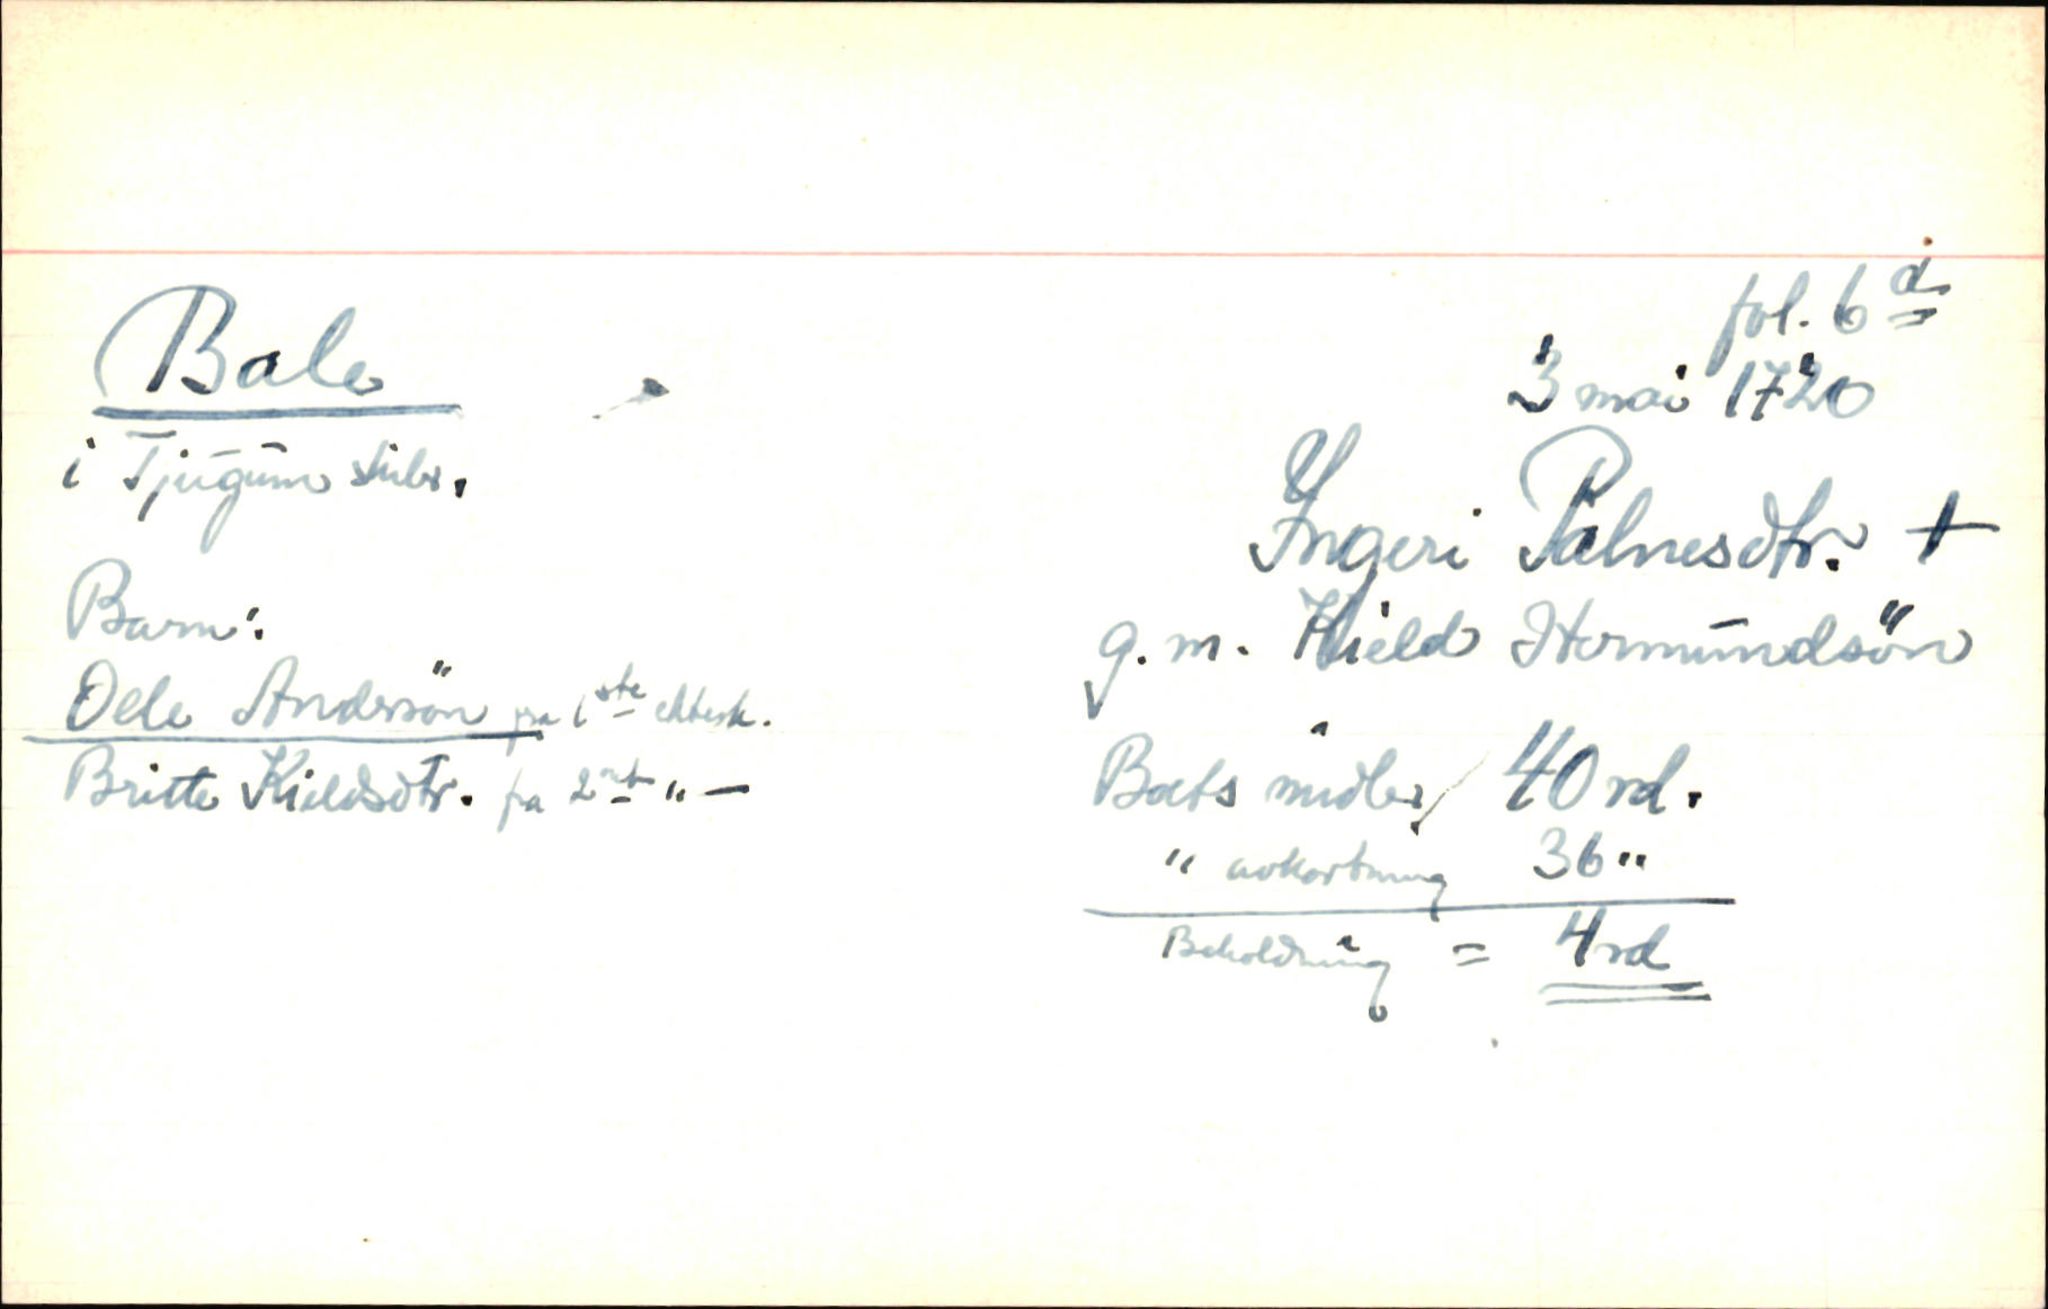 Bale
i Tjugum skibr.
Barn:
Oele Andersön fra 1ste ektesk.
Britte Kieldsdtr. fra 2net " —
fol. 6a
3 mai 1720
Yngeri Palnesdtr. +
g. m. Kield Hermundsön
Boets midler 40 rd.
" avkortning 36 "
Beholdning = 4 rd